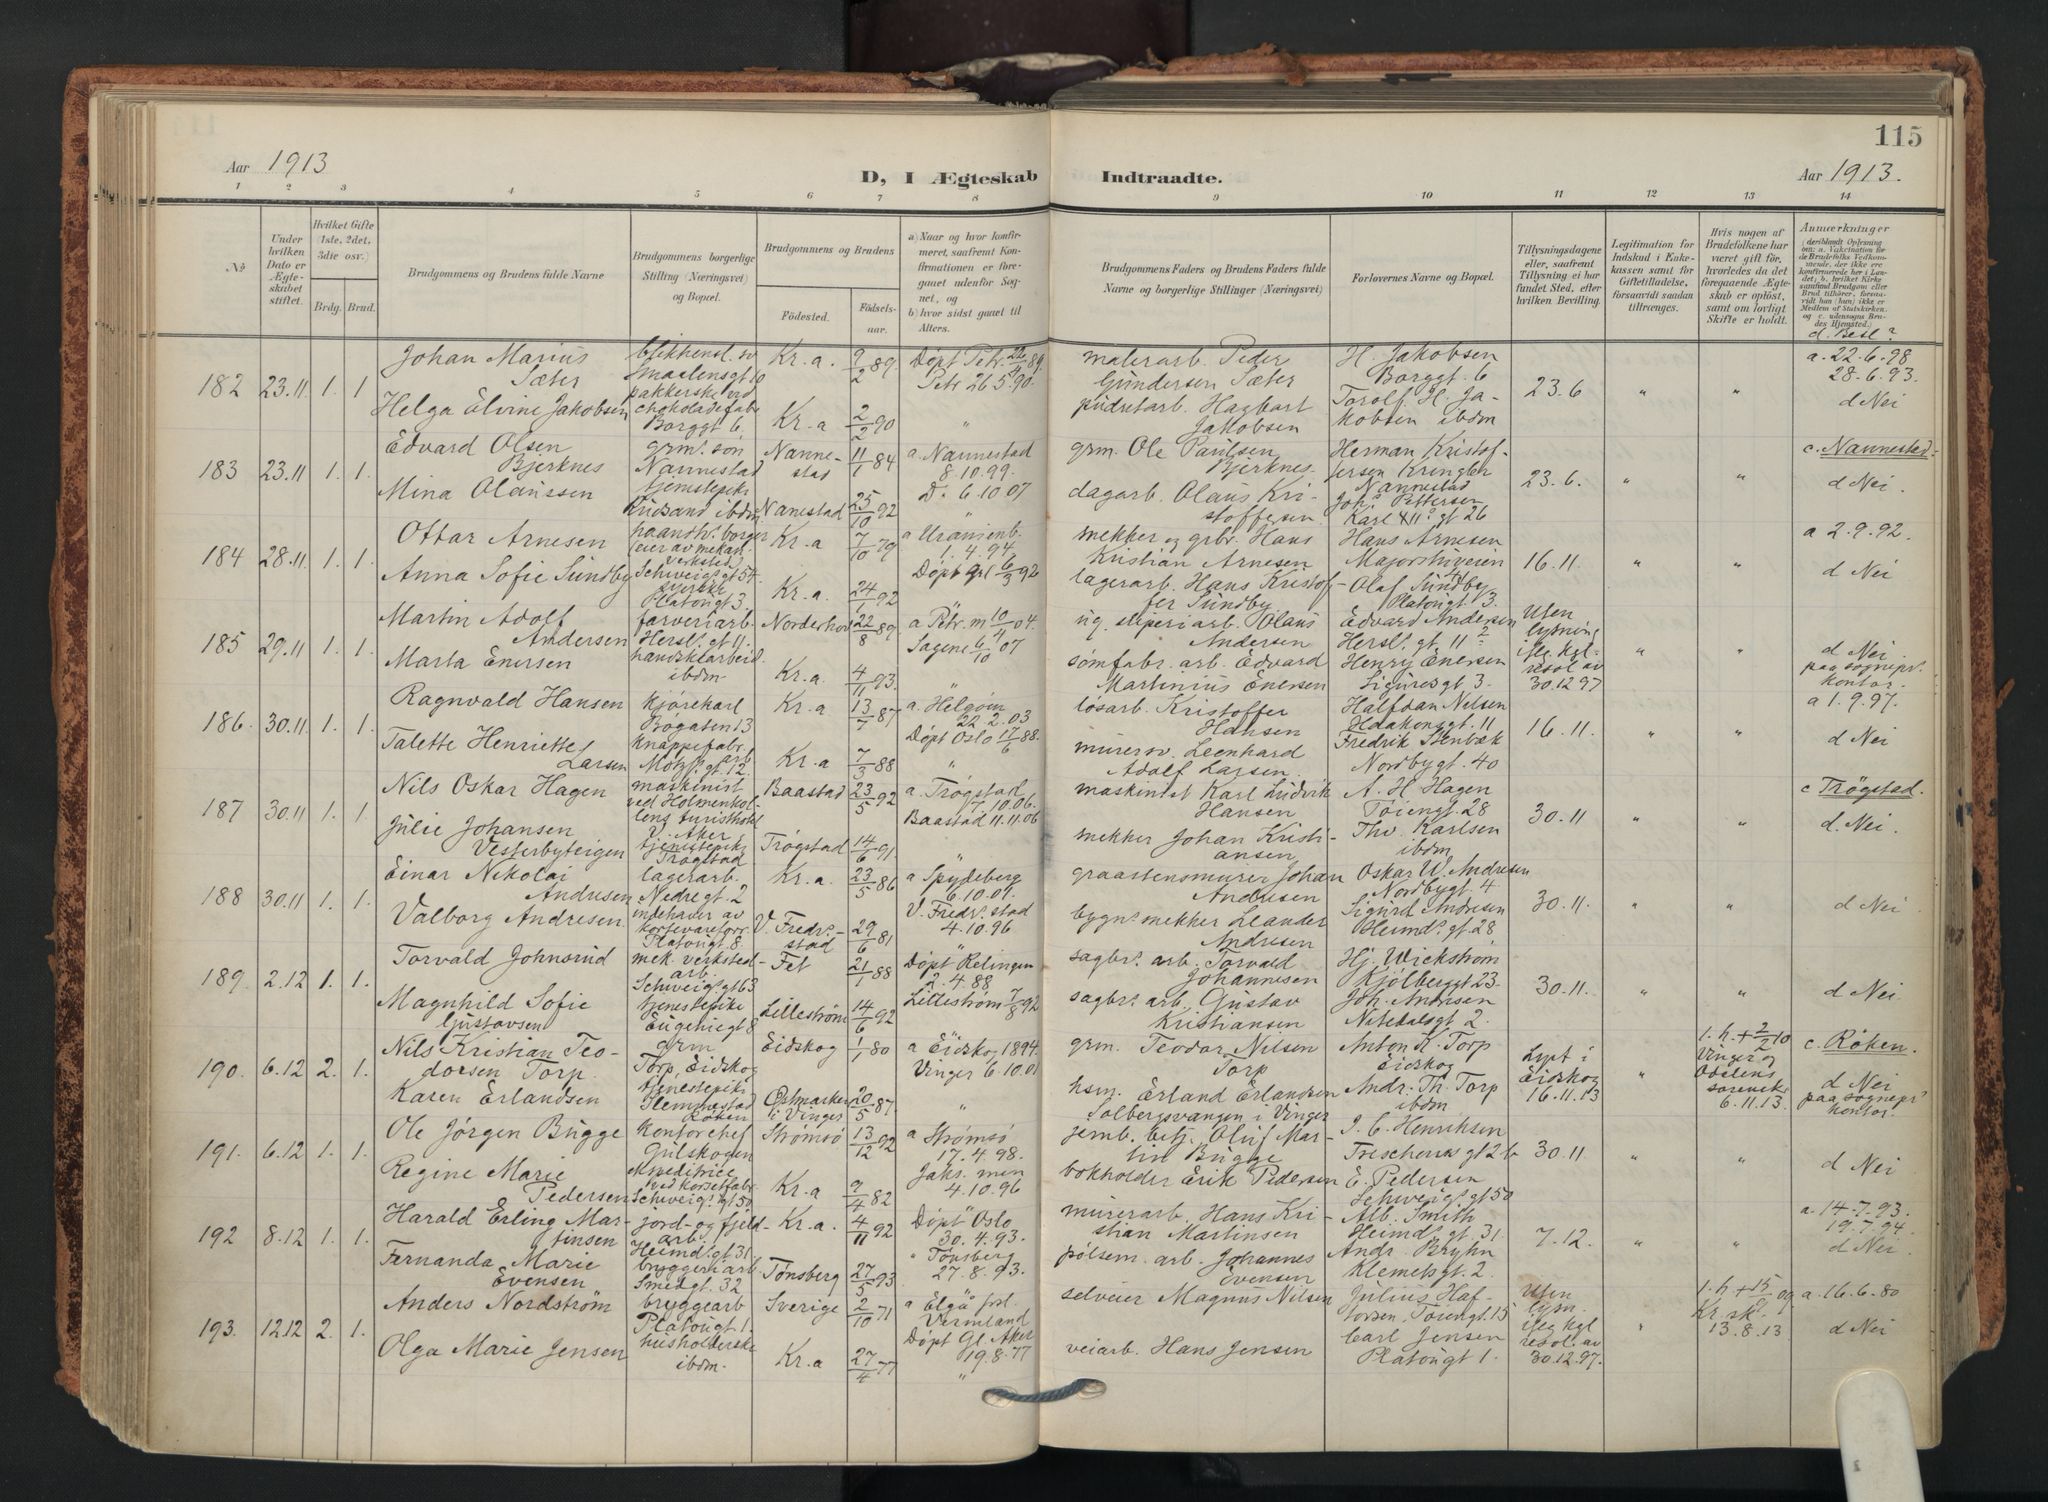 115
Aar 1913
D, I Ægteskab
Indtraadte.
Aar 1913.
1 2 3 4 5 6 7 8 9 10 11 12 13 14
No
Under hvilken Dato er Ægteskabet stiftet.
Hvilket Gifte (1ste, 2det, 3die osv.)
Brdg. Brud.
Brudgommens og Brudens fulde Navne
Brudgommens borgerlige Stilling (Næringsvei) og Bopæl.
Brudgommens og Brudens
Födested.
Födselsaar.
a) Naar og hvor konfirmeret, saafremt Konfirmationen er foregaaet udenfor Sognet, og
b) hvor sidst gaaet til Alters.
Brudgommens Faders og Brudens Faders fulde Navne og borgerlige Stillinger (Næringsvei)
Forlovernes Navne og Bopæl.
Tillysningsdagene eller, saafremt Tillysning ei har fundet Sted, efter hvilken Bevilling.
Legitimation for Indskud i Enkekassen samt for Giftetilladelse, forsaavidt saadan tiltrænges.
Hvis nogen af Brudefolkene har været gift för, hvorledes da det foregaaende Ægteskab er oplöst, samt om lovligt Skifte er holdt.
Anmærkninger
d. Besl?
182 23.11 1. 1
Johan Marius Sæter
Kr.a. 9/2 89
Døpt Petr. 22/4 89.
Petr 26 5 90.
malerarb. Peder Gundersen Sæter
H. Jakobsen Borggt. 6
23.6 " "
a. 22.6.98
28.6.93.
d Nei
Helga Elvine Jakobsen
pakkerske ved chokoladefabr Borggt 6.
Kr.a 2/2 90
"
pudretarb. Hagbart Jakobsen
Torolf H. Jakobsen ibdm
183 23.11 1. 1.
Edvard Olsen Bjerknes
grm. søn Nannestad
Nannestad 11/1 84
a. Nannestad 8.10.99.
grm. Ole Paulsen Bjerknes
Herman Kristoffersen Kringler Nannestad
23.6. " "
c. Nannestad.
d Nei.
Mina Olaussen
Nanestad 25/10 92
D. 6.10.07
dagarb. Olaus Kristoffersen
Joh. Pettersen Karl XII gt 26
184 28.11 1. 1.
Ottar Arnesen
haandv. borger (eier av mekan. verksted) Schweigs gt 54.
Kr.a 7/10 79
a Uranienb. 1.4.94
mekker og grbr. Hans Kristian Arnesen
Hans Arnesen Majorstuveien
16.11. " "
a 2.9.92.
d Nei
Anna Sofie Sundby
Platougt 3.
Kr.a. 24/1 92
Døpt Grl 6/3 92
lagerarb. Hans Kristoffer Sundby
Olaf Sundby Platougt 3.
185 29.11 1. 1.
Martin Adolf Andersen
farveriarb. Hersl. gt 11.
Norderhov 22/8 89.
a Petr. m 10/4 04.
Sagene 6/10 07
ug. sliperiarb. Olaus Andersen
Edvard Andersen Hersl. gt 11
Uten lysning ifl. kgl. resol av 30.12 97
" "
d Nei.
paa sognepr. kontor.
Marta Enersen
handskearbeid. ibdm.
Kr.a. 4/11 93.
"
sømfabr. arb. Edvard Martinius Enersen
Henry Enersen Sigurdsgt 3.
186. 30.11 1. 1.
Ragnvald Hansen
kjørekarl Bøgaten 13
Kr.a 13/7 87
a. Helgøen 22.2.03
løsarb. Kristoffer Hansen
Halfdan Nilsen Haakonsgt. 11
16.11. " "
a 1.9.97.
d Nei
Talette Henriette Larsen
knappefabr. arb Motzf. gt 12.
Kr.a 7/3 88
Døpt Oslo 17/6 88.
"
murersv. Leonhard Adolf Larsen.
Fredrik Stenbæk Nordbygt. 40
187 30.11 1. 1.
Nils Oskar Hagen
maskinist ved Holmenkollens turisthotel V. Aker
Baastad 23/5 92
a. Trøgstad 7.10.06.
maskinist Karl Ludvik Hansen
A. H. Hagen Tøiengt. 28
30.11 " "
c Trøgstad.
d. Nei
Julie Johansen Vesterbyteigen
tjenestepike Trøgstad
Trøgstad 14/6 91.
Baastad 11.11.06
mekker Johan Kristiansen
Thv. Karlsen ibdm
188 30.11 1. 1.
Einar Nikolai Andresen
lagerarb. Nedregt. 2
Kr.a. 23/5 86
a Spydeberg 6.10.01.
graastensmurer Johan Andresen
Oskar W. Andresen Nordbygt. 4
30.11. " "
d Nei
Valborg Andresen
indehaver av kortevareforr. Platougt 8.
V. Fredr.stad 29/6 81
V. Fredr. stad 4.10.96
bygn. mekker Leander Andresen
Sigurd Andresen Heimd. gt. 28
189. 2.12 1. 1.
Torvald Johnsrud
mek. verkstedarb. Schweigs gt 63
Fet 21/1 88
Døpt Relingen 2.4.88
sagbr. arb. Torvald Johannesen
Hj. Wickstrøm Kjølberggt 23.
30.11. " "
d Nei
Magnhild Sofie Gustavsen
tjenestepike Eugeniegt 8
Lillestrøm 14/6 92
Lillestrøm 7/8 92
sagbr. arb. Gustav Kristiansen
Joh. Andresen Nitedalsgt 2.
190. 6.12 2. 1.
Nils Kristian Teodorsen Torp.
grm Torp, Eidskog
Eidskog 1/1 80
a Eidskog 1894.
grm. Teodor Nilsen Torp
Anton K. Torp Eidskog
Lyst i Eidskog 16.11.13
"
1. h. + 2/2 10
Vinger og Odalens sorenskr 6.11.13.
c. Røken.
d Nei
paa sognepr. kontor.
Karen Erlandsen
tjenestepike Slemmestad Røken
Østmarken i Vinger 20/5 87.
Vinger 6.10.01
"
hsm. Erland Erlandsen Solbergsvangen i Vinger
Andr. Th. Torp ibdm
191. 6.12 1. 1.
Ole Jørgen Bugge
kontorchef Gulskogen
Strømsø 13/12 92
a Strømsø 17.4.98.
jernb. betj. Oluf Martin Bugge
I. C. Henriksen
30.11. " "
d Nei
Regine Marie Pedersen
ved korsetfabr. Schweigs gt 50
Kr.a 9/4 82
Jaks. men 4.10.96
bokholder Erik Pedersen
E. Pedersen Schweigs gt 50
192 8.12 1. 1.
Harald Erling Martinsen
jord- og fjeldarb. Heimd. gt 31.
Kr.a. 4/11 92
Døpt Oslo 30.4.93.
murerarb. Hans Kristian Martinsen
Alb. Smith Heimd. gt 31
7.12. " "
a. 14.7.93.
19.7.94.
d Nei
Fernanda Marie Evensen
bryggeriarb Smedgt. 32
Tønsberg 27/5 93
" Tønsberg 27.8.93.
pølsem. arb. Johannes Evensen
Andr. Bryhn Klemetsgt. 2.
193. 12.12 2. 1.
Anders Nordstrøm
bryggearb Platougt 1.
Sverige 2/10 71
a Elgå fors. Vermland
selveier Magnus Nilsen
Julius Haftorsen, Tøiengt. 15
Uten lysn. ifleg kgl resol. av 30.12.97.
"
1. h + 15/2 09
Kr. sk. 13.8.13
a. 16.6.80
d Nei
Olga Marie Jensen
husholderske ibdm.
Kr.a 27/4 77
Døpt Gl. Aker 19.8.77
"
veiarb. Hans Jensen
Carl Jensen Platougt 1.